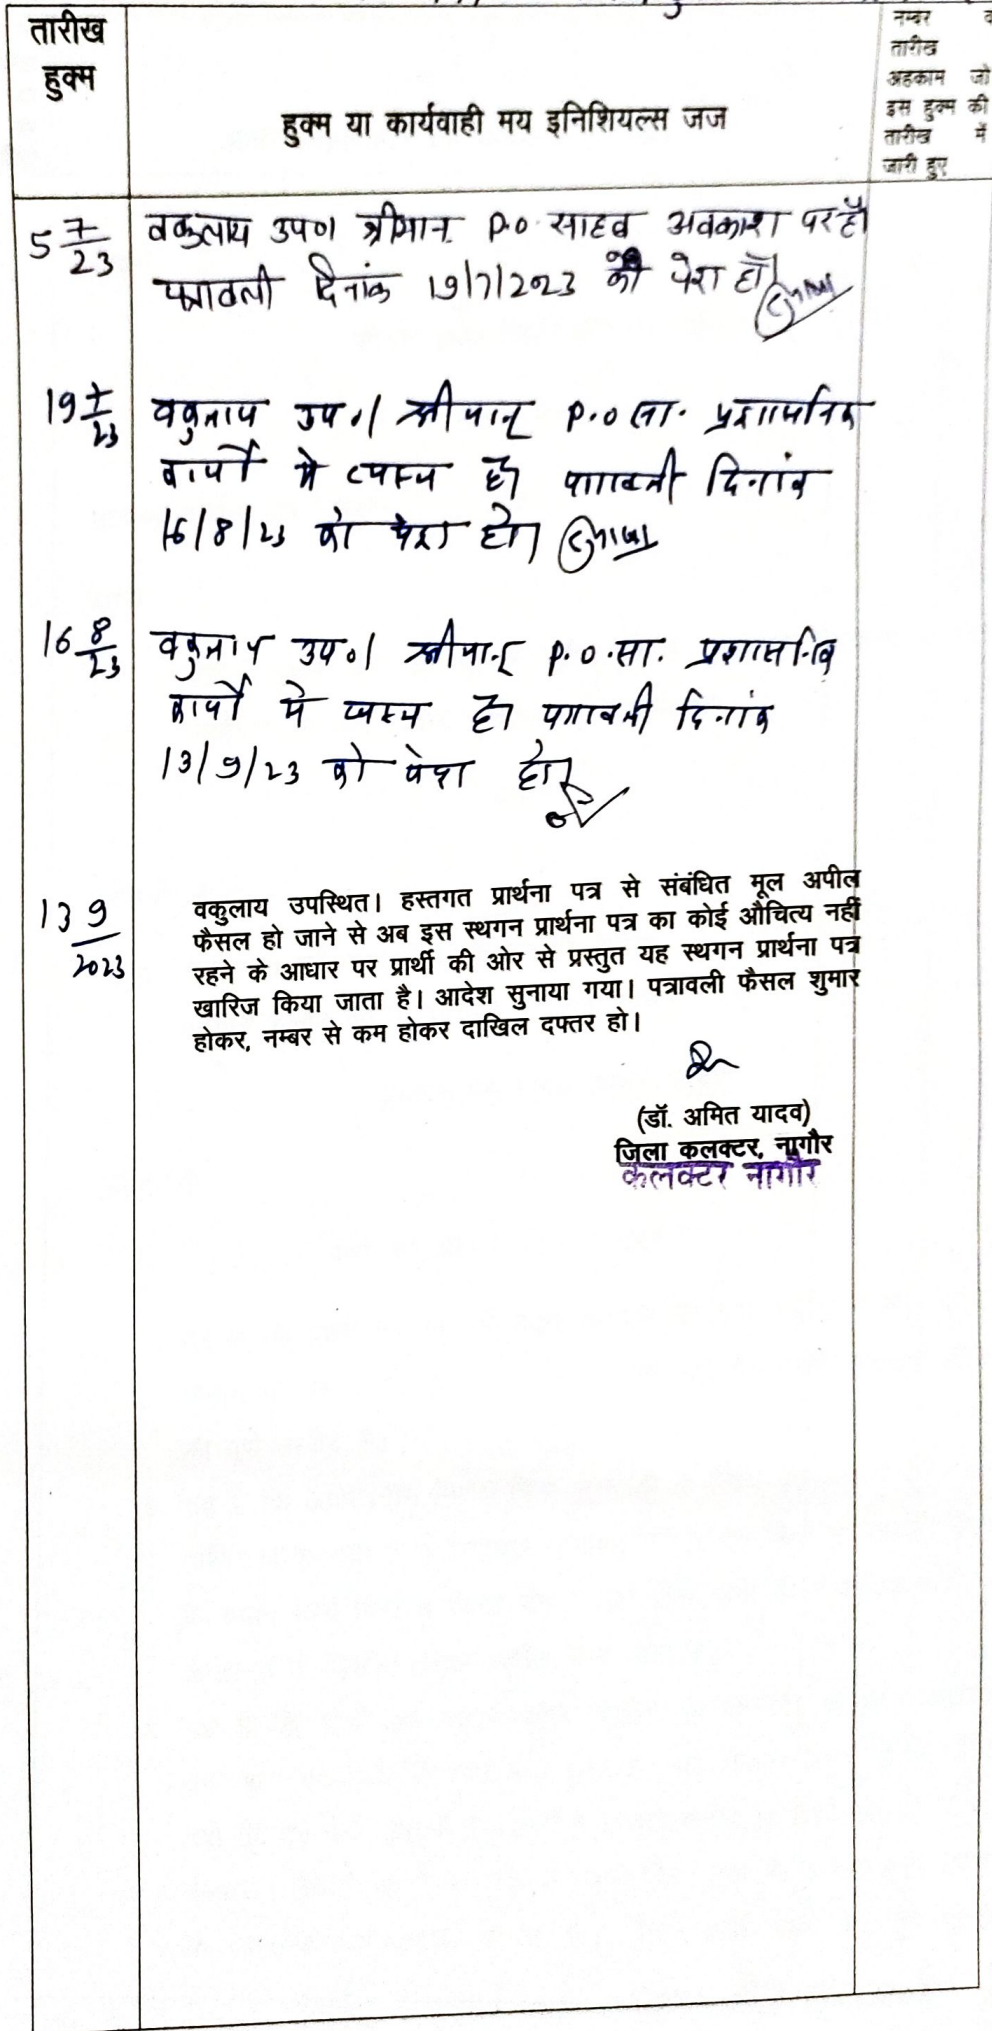 तारीख
हुक्म
हुक्म या कार्यवाही मय इनिशियल्स जज
नम्बर व
तारीख
अहकाम जो
इस हुक्म की
तारीख में
जारी हुए
5 7/23
वकुलाय उप०। श्रीमान P.O. साहब अवकाश पर है।
पत्रावली दिनांक 19/7/2023 को पेश हो।
19 7/23
वकुलाय उप०। श्रीमान् P.O सा. प्रशासनिक
कार्यों मे व्यस्त है। पत्रावली दिनांक
16/8/23 को पेश हो।
16 8/23
वकुलाय उप०। श्रीमान् P.O.सा. प्रशासनिक
कार्यों मे व्यस्त है। पत्रावली दिनांक
13/9/23 को पेश हो।
13 9/2023
वकुलाय उपस्थित। हस्तगत प्रार्थना पत्र से संबंधित मूल अपील
फैसल हो जाने से अब इस स्थगन प्रार्थना पत्र का कोई औचित्य नहीं
रहने के आधार पर प्रार्थी की ओर से प्रस्तुत यह स्थगन प्रार्थना पत्र
खारिज किया जाता है। आदेश सुनाया गया। पत्रावली फैसल शुमार
होकर, नम्बर से कम होकर दाखिल दफ्तर हो।
(डॉ. अमित यादव)
जिला कलक्टर, नागौर
कलक्टर नागौर